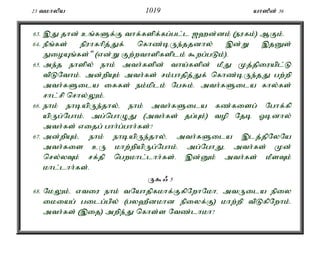 23 வமாலிய 1019 யாஸீன் 36
63. இது தான் உங்களுக்கு வாக்களிக்கப்பட்ட ஜஹன்னம் (நரகம்) ஆகும்.
64. நீங்கள் நிராகரித்துக் கொண்டிருந்ததனால் இன்று இதனுள்
நுழையுங்கள்" (என்று குற்றவாளிகளிடம் கூறப்படும்).
65. அந்த நாளில் நாம் அவர்களின் வாய்களின் மீது முத்திரையிட்டு
விடுவோம். அன்றியும் அவர்கள் சம்பாதித்துக் கொண்டிருந்தது பற்றி
அவர்களுடைய கைகள் நம்மிடம் பேசும். அவர்களுடைய கால்கள்
சாட்சி சொல்லும்.
66. நாம் நாடியிருந்தால், நாம் அவர்களுடைய கண்களைப் போக்கி
யிருப்போம். அப்பொழுது (அவர்கள் தப்பும்) வழி தேடி ஓடினால்
அவர்கள் எதைப் பார்ப்பார்கள்?
67. அன்றியும், நாம் நாடியிருந்தால், அவர்களுடைய இடத்திலேயே
அவர்களை உரு மாற்றியிருப்போம். அப்போது, அவர்கள் முன்
செல்லவும் சக்தி பெறமாட்டார்கள். இன்னும் அவர்கள் மீளவும்
மாட்டார்கள்.
ருகூஃ 5
68. மேலும், எவரை நாம் வயோதிகமாக்குகிறோமோ, அவருடைய நிலை
மையைப் படைப்பில் (பலஹீனமான நிலைக்கு) மாற்றி விடுகிறோம்.
அவர்கள் (இதை) அறிந்து கொள்ள வேண்டாமா?